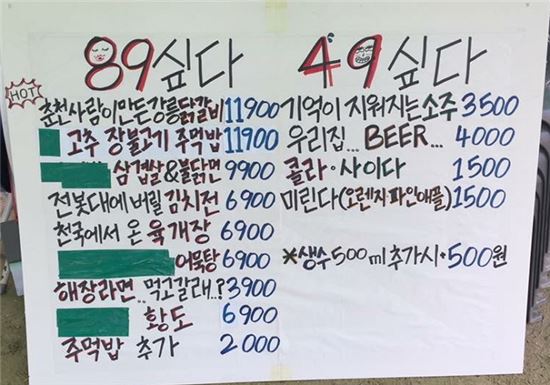 89싶다
HOT
춘천사람이만든강릉닭갈비 11900
고추장불고기 주먹밥 11900
삼겹살&불닭면 9900
전봇대에버릴 김치전 6900
천국에서 온 육개장 6900
어묵탕 6900
해장라면...먹고갈래..? 3900
황도 6900
주먹밥 추가 2000
49싶다
기억이 지워지는소주 3500
우리집... BEER... 4000
콜라·사이다 1500
미린다(오렌지·파인애플) 1500
※생수500ml추가시+500원